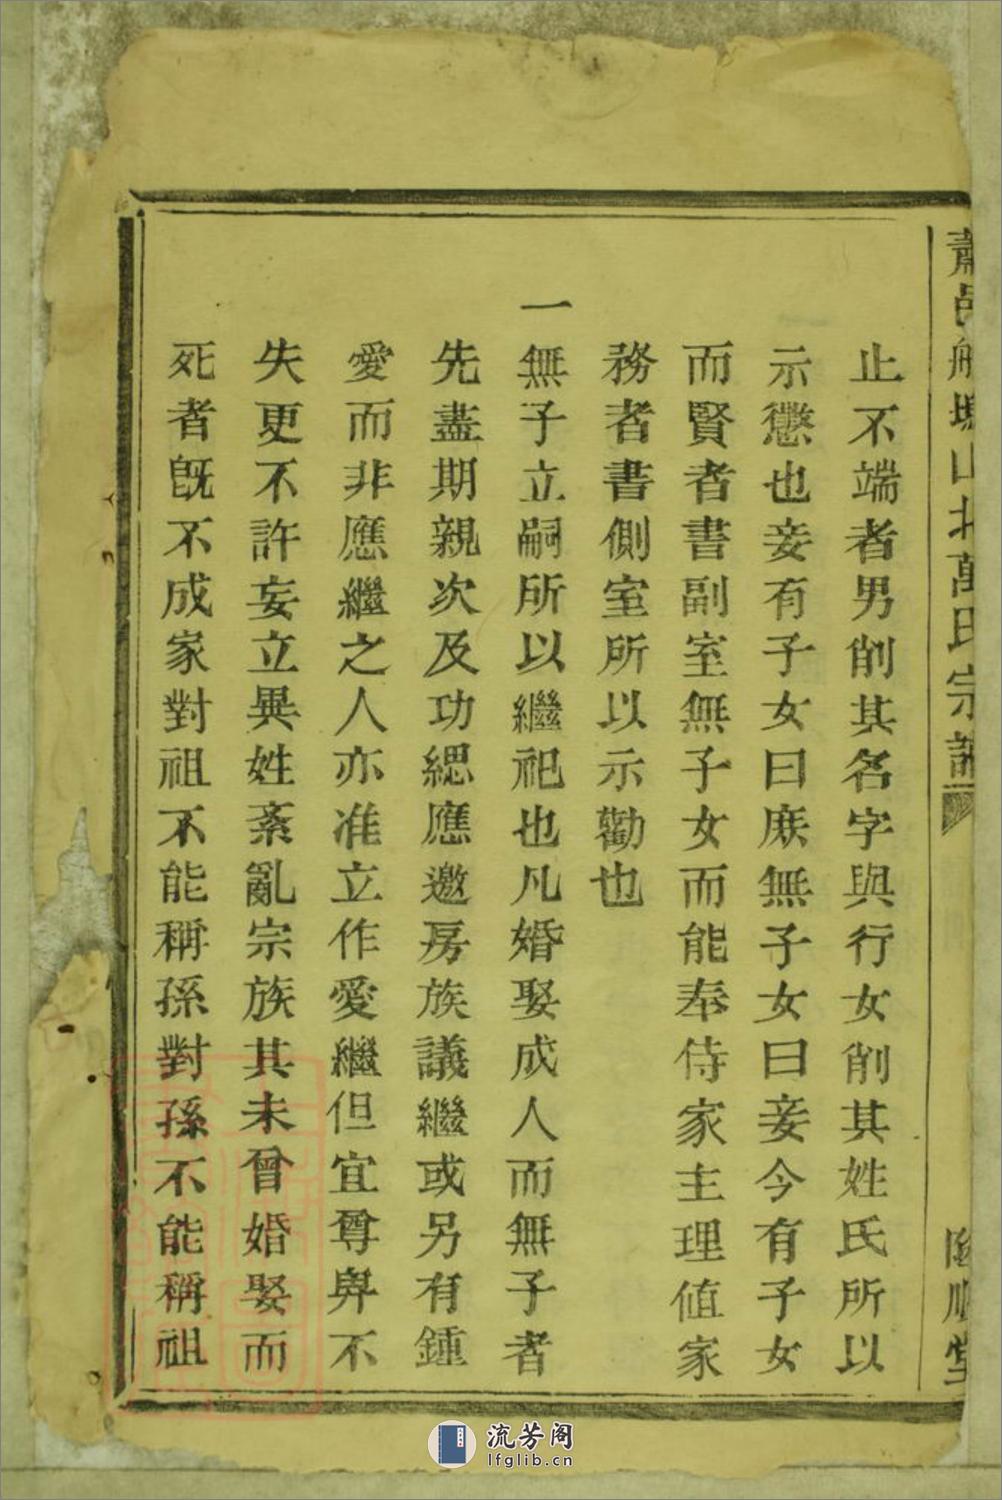 蕭邑航塢山北萬氏宗譜
止不端者男削其名字與行女削其姓氏所以
示懲也妾有子女曰庶無子女曰妾今有子女
而賢者書副室無子女而能奉侍家主理値家
務者書側室所以示勸也
一無子立嗣所以繼祀也凡婚娶成人而無子者
先盡期親次及功緦應邀房族議繼或另有鍾
愛而非應繼之人亦准立作愛繼但宜尊卑不
失更不許妄立異姓紊亂宗族其未曾婚娶而
死者旣不成家對祖不能稱孫對孫不能稱祖
順堂
流芳阁
lfglib.cn